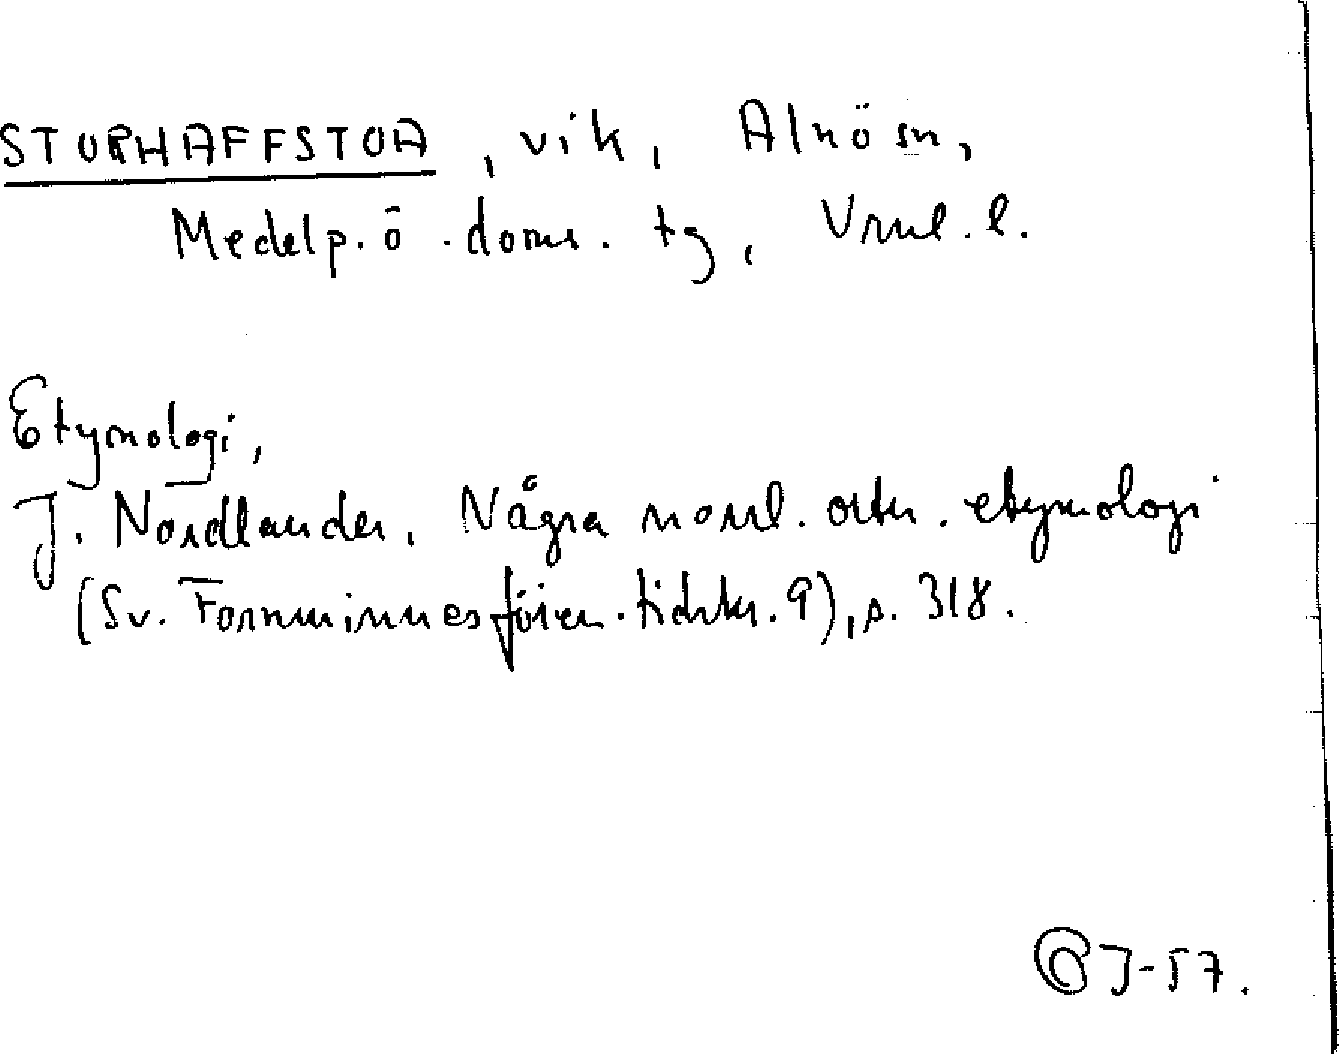 STORHAFFSTOA, vik, Alnö sn,
Medelp. ö. doms. tg, Vnul. l.
Etymologi,
J. Nordlander. Några norrl. ortn. etymologi
(Sv. Fornminnesfören. tidskr. 9), s. 318.
GJ-57.